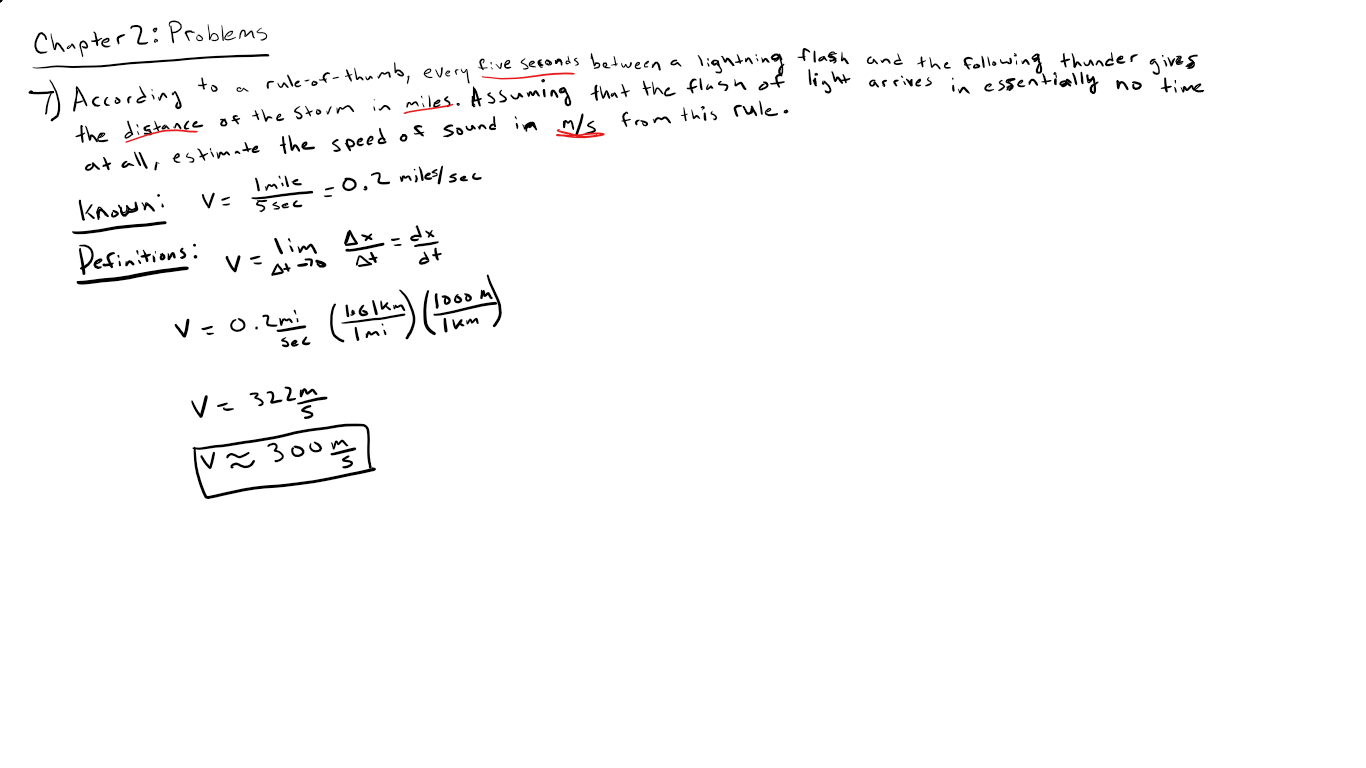 Chapter 2: Problems
7) According to a rule-of-thumb, every five seconds between a lightning flash and the following thunder gives
the distance of the storm in miles. Assuming that the flash of light arrives in essentially no time
at all, estimate the speed of sound in m/s from this rule.
Known: V = 1mile/5sec = 0.2 miles/sec
Definitions: V = lim Δt→0 Δx/Δt = dx/dt
V = 0.2 mi/sec (1.61km/1mi) (1000 m/1km)
V = 322 m/s
V ≈ 300 m/s